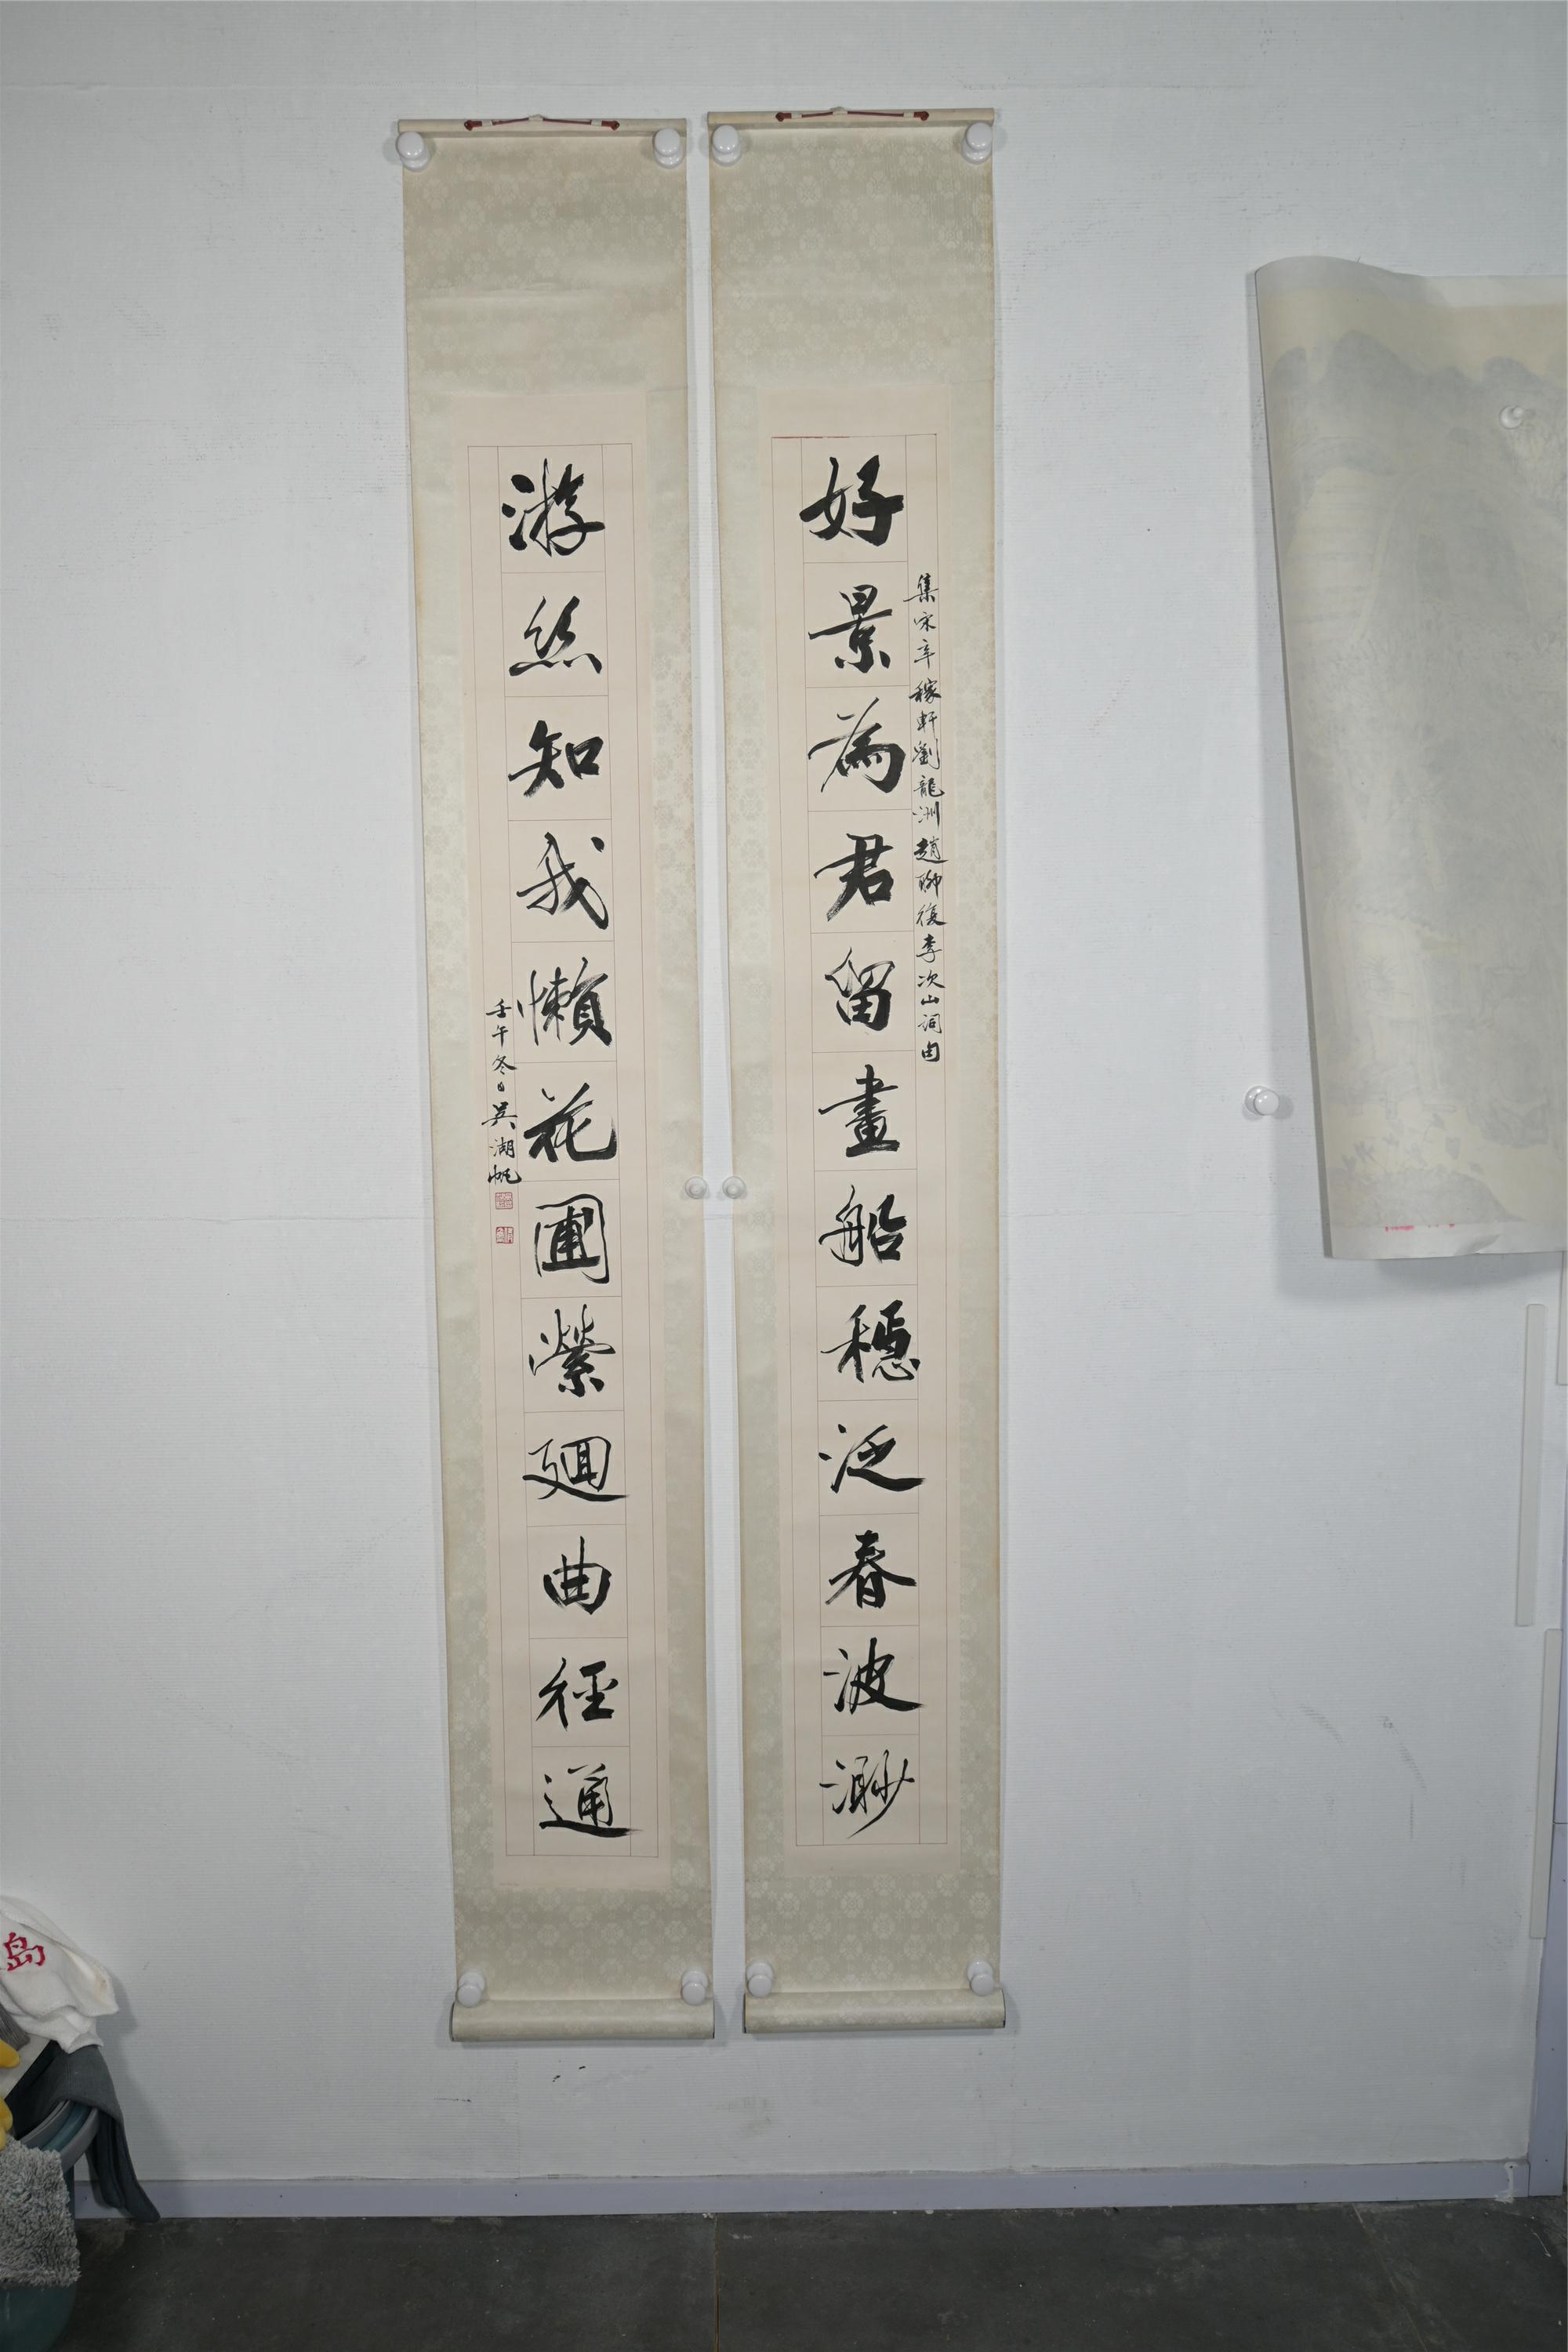 好景為君留畫船穩泛春波渺
集宋辛稼軒劉龍洲趙聊復李次山詞句
游絲知我懶花圃縈迴曲徑通
壬午冬日吳湖帆
島